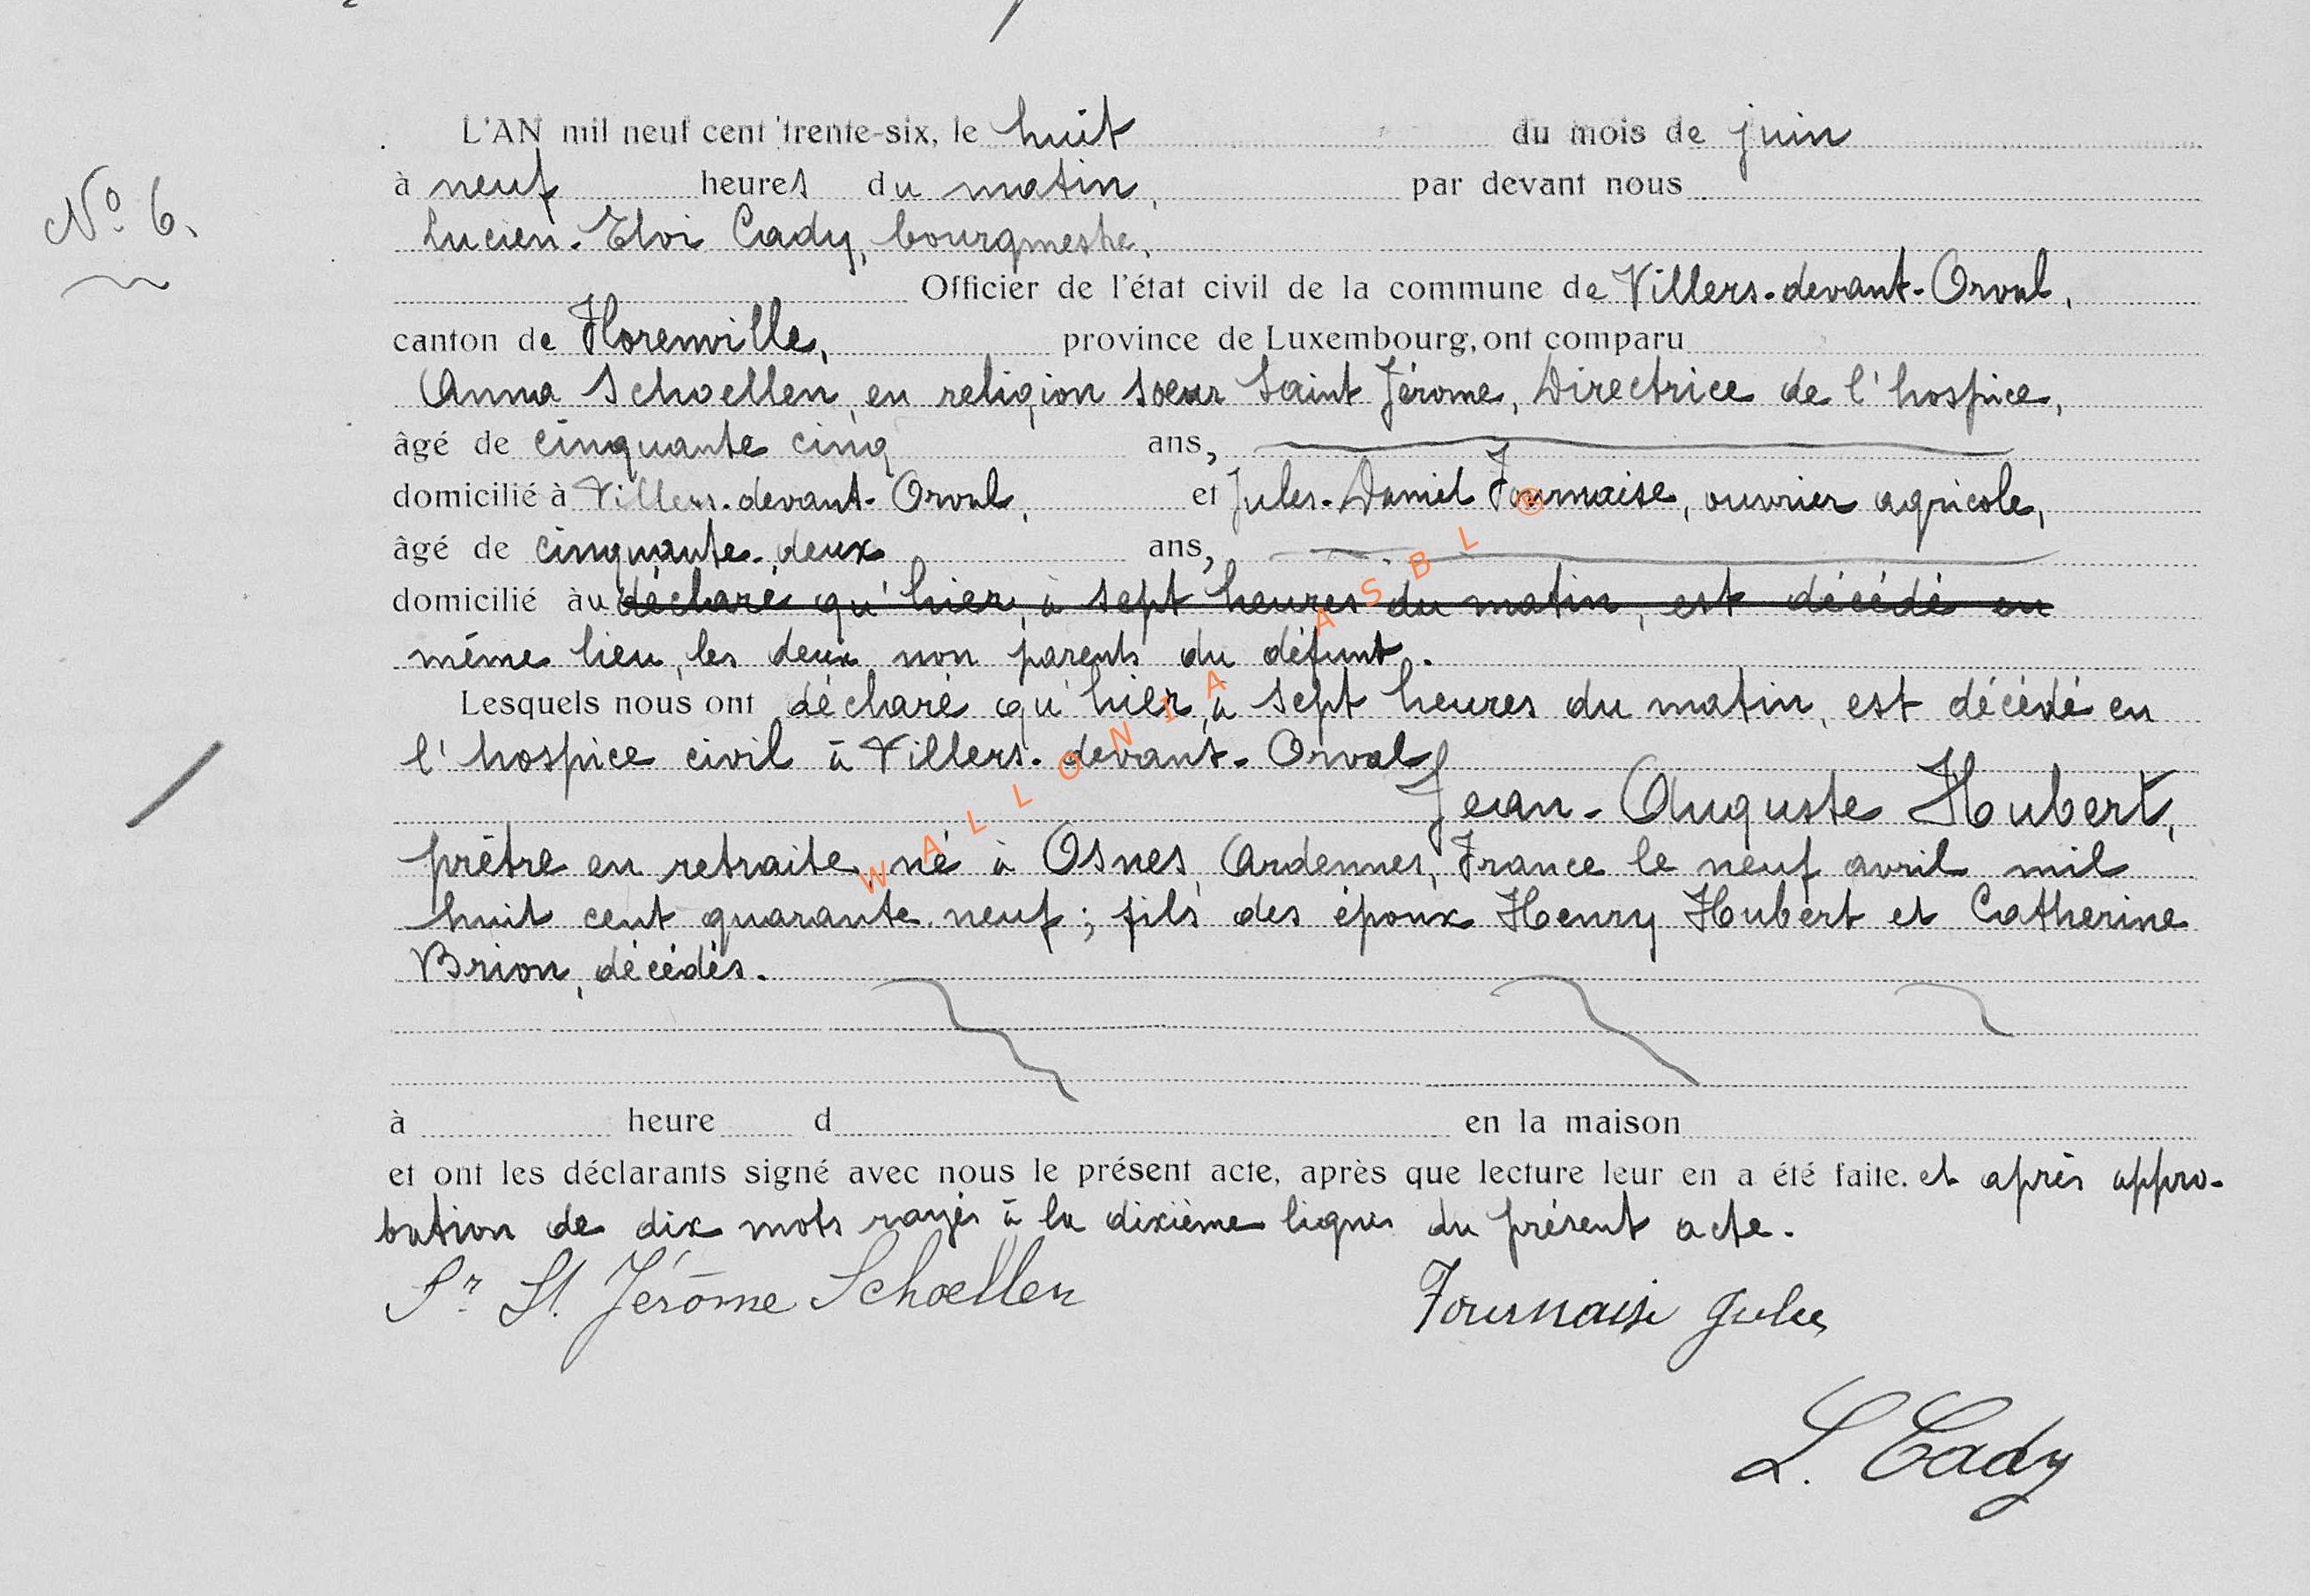 L'AN mil neuf cent trente-six, le huit du mois de juin
à neuf heures du matin, par devant nous
N° 6.
Lucien-Eloi Cady, bourgmestre,
Officier de l'état civil de la commune de Villers-devant-Orval,
canton de Florenville, province de Luxembourg, ont comparu
Anna Schoellen, en religion soeur Saint Jérome, Directrice de l'hospice,
âgé de cinquante cinq ans,
domicilié à Villers-devant-Orval, et Jules-Daniel Fournaise, ouvrier agricole,
âgé de cinquante-deux ans,
domicilié àu déclaré qu'hier, à sept heures du matin, est décédé en
même lieu, les deux non parents du défunt.
Lesquels nous ont déclaré qu'hier, à sept heures du matin, est décédé en
l'hospice civil à Villers-devant-Orval
Jean-Auguste Hubert,
prêtre en retraite, né à Osnes, Ardennes, France le neuf avril mil
huit cent quarante-neuf; fils des époux Henry Hubert et Catherine
Brion, décédés.
à heure d en la maison
et ont les déclarants signé avec nous le présent acte, après que lecture leur en a été faite. et après appro-
bation de dix mots rayés à la dixième lignes du présent acte.
Sr St. Jérôme Schoellen Fournaise Jules
L. Cady
WALLONIA ASBL ®